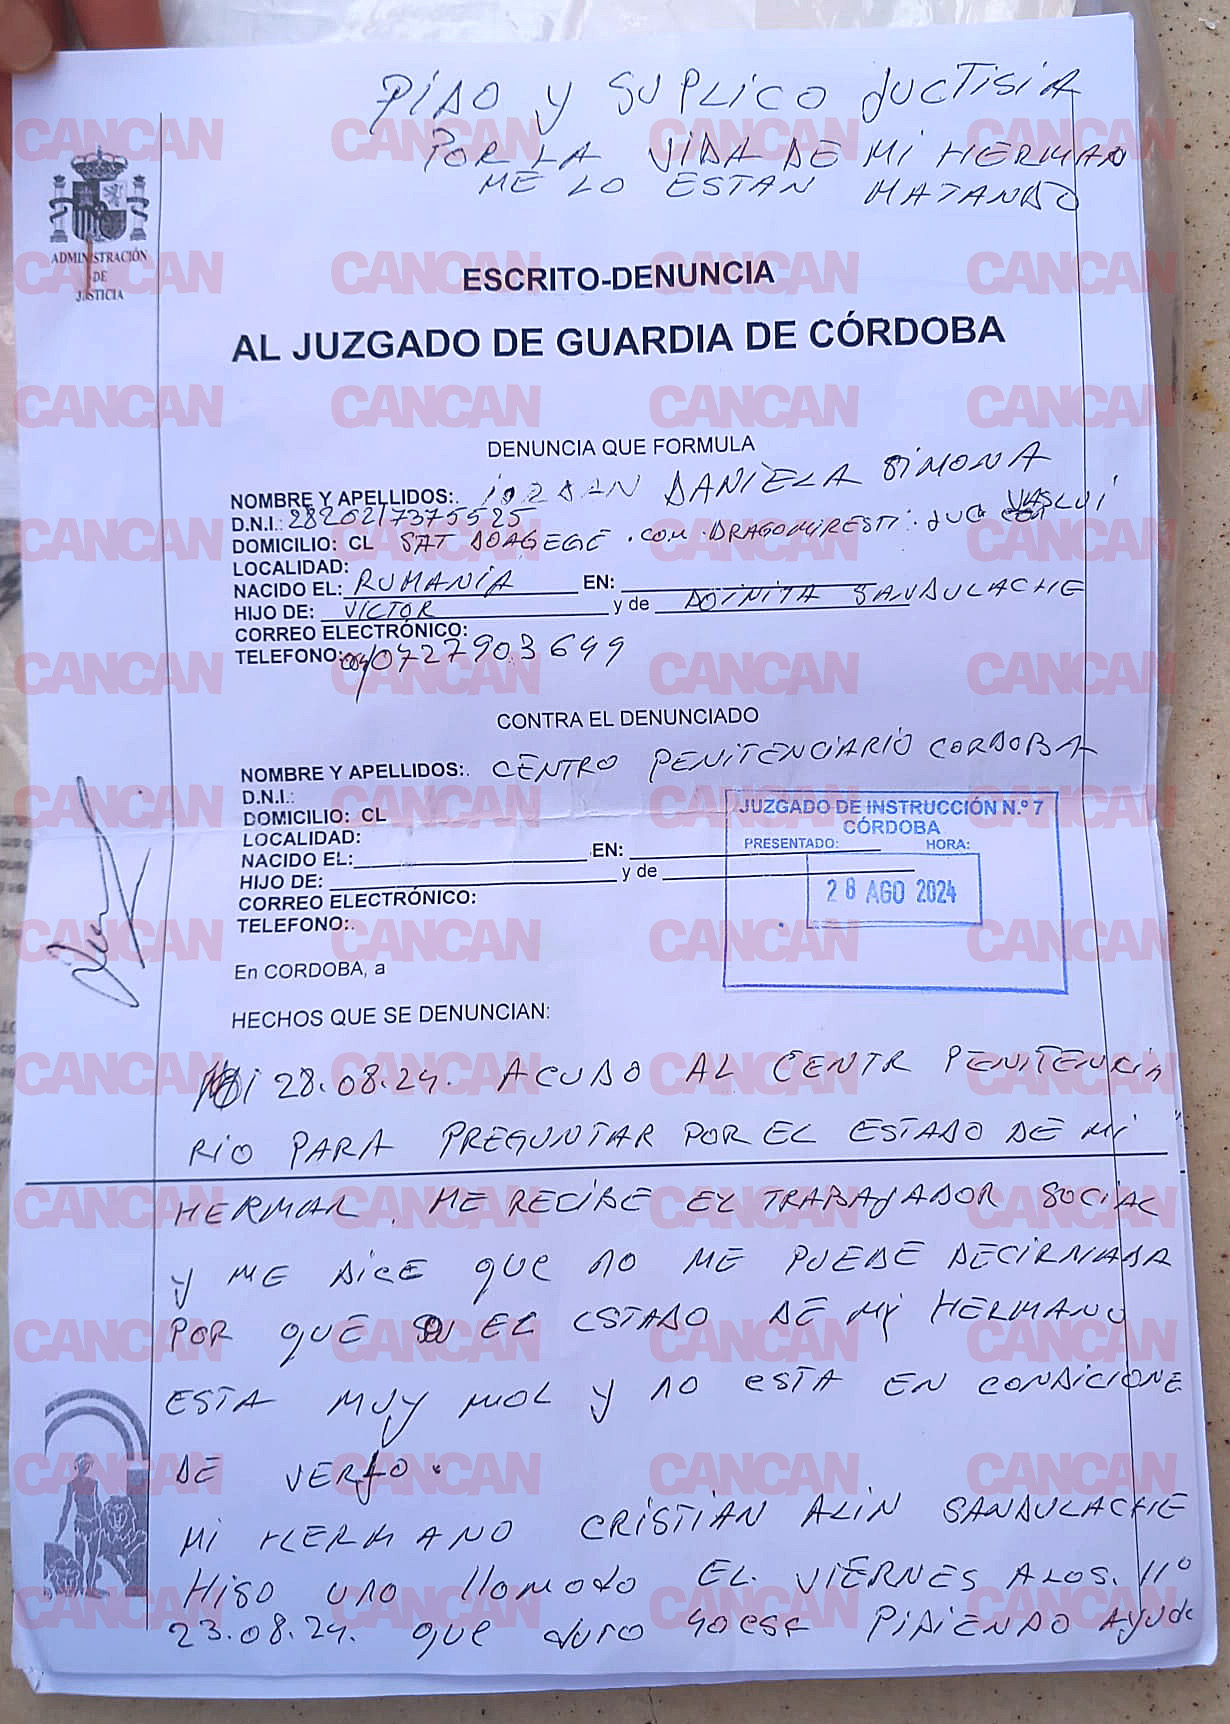 PIDO Y SUPLICO JUCTISIA
POR LA VIDA DE MI HERMANO
ME LO ESTAN MATANDO
ADMINISTRACIÓN
DE
JUSTICIA
ESCRITO-DENUNCIA
AL JUZGADO DE GUARDIA DE CÓRDOBA
DENUNCIA QUE FORMULA
NOMBRE Y APELLIDOS:. IORDAN DANIELA SIMONA
D.N.I.: 2820217375525
DOMICILIO: CL SAT DOAGEGE . COM . DRAGOMIRESTI . JUD VASLUI
LOCALIDAD:
NACIDO EL: RUMANIA EN:
HIJO DE: VICTOR y de DOINITA SANDULACHE
CORREO ELECTRÓNICO:
TELEFONO: 0727903649
CONTRA EL DENUNCIADO
NOMBRE Y APELLIDOS:. CENTRO PENITENCIARIO CORDOBA
D.N.I.:
DOMICILIO: CL
LOCALIDAD:
NACIDO EL: EN:
HIJO DE: y de
CORREO ELECTRÓNICO:
TELEFONO:.
JUZGADO DE INSTRUCCIÓN N.º 7
CÓRDOBA
PRESENTADO: HORA:
28 AGO 2024
En CORDOBA, a
HECHOS QUE SE DENUNCIAN:
28.08.24. ACUDO AL CENTR PENITENCIA
RIO PARA PREGUNTAR POR EL ESTADO DE MI
HERMAN. ME RECIBE EL TRABAJADOR SOCIAL
y ME DICE que no ME PUEDE DECIRNADA
POR QUE EL ESTADO DE MY HERMANO
ESTA MUY MOL y NO ESTA EN CONDICIONE
DE VERLO.
MI HERMANO CRISTIAN ALIN SANDULACHE
HISO UNO llomodo EL VIERNES ALOS. 11º
23.08.24. que duro PIDIENDO Ayude
CANCAN